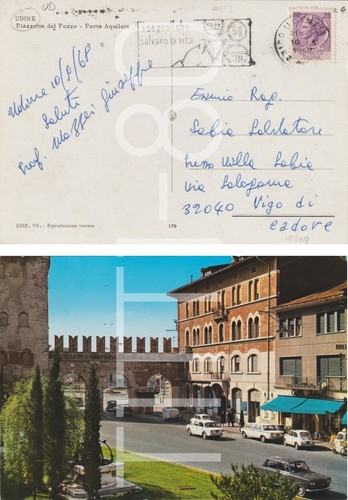 UD
UDINE
Piazzetta del Pozzo - Porta Aquileia
salvano la vita
Udine 10/8/68
Saluti
Prof. Mazzei Giuseppe
Egregio Rag.
Sabia Salvatore
presso Villa Sabia
via Salagona
32040 Vigo di
Cadore
EDIZ. VS. - Riproduzione vietata
179